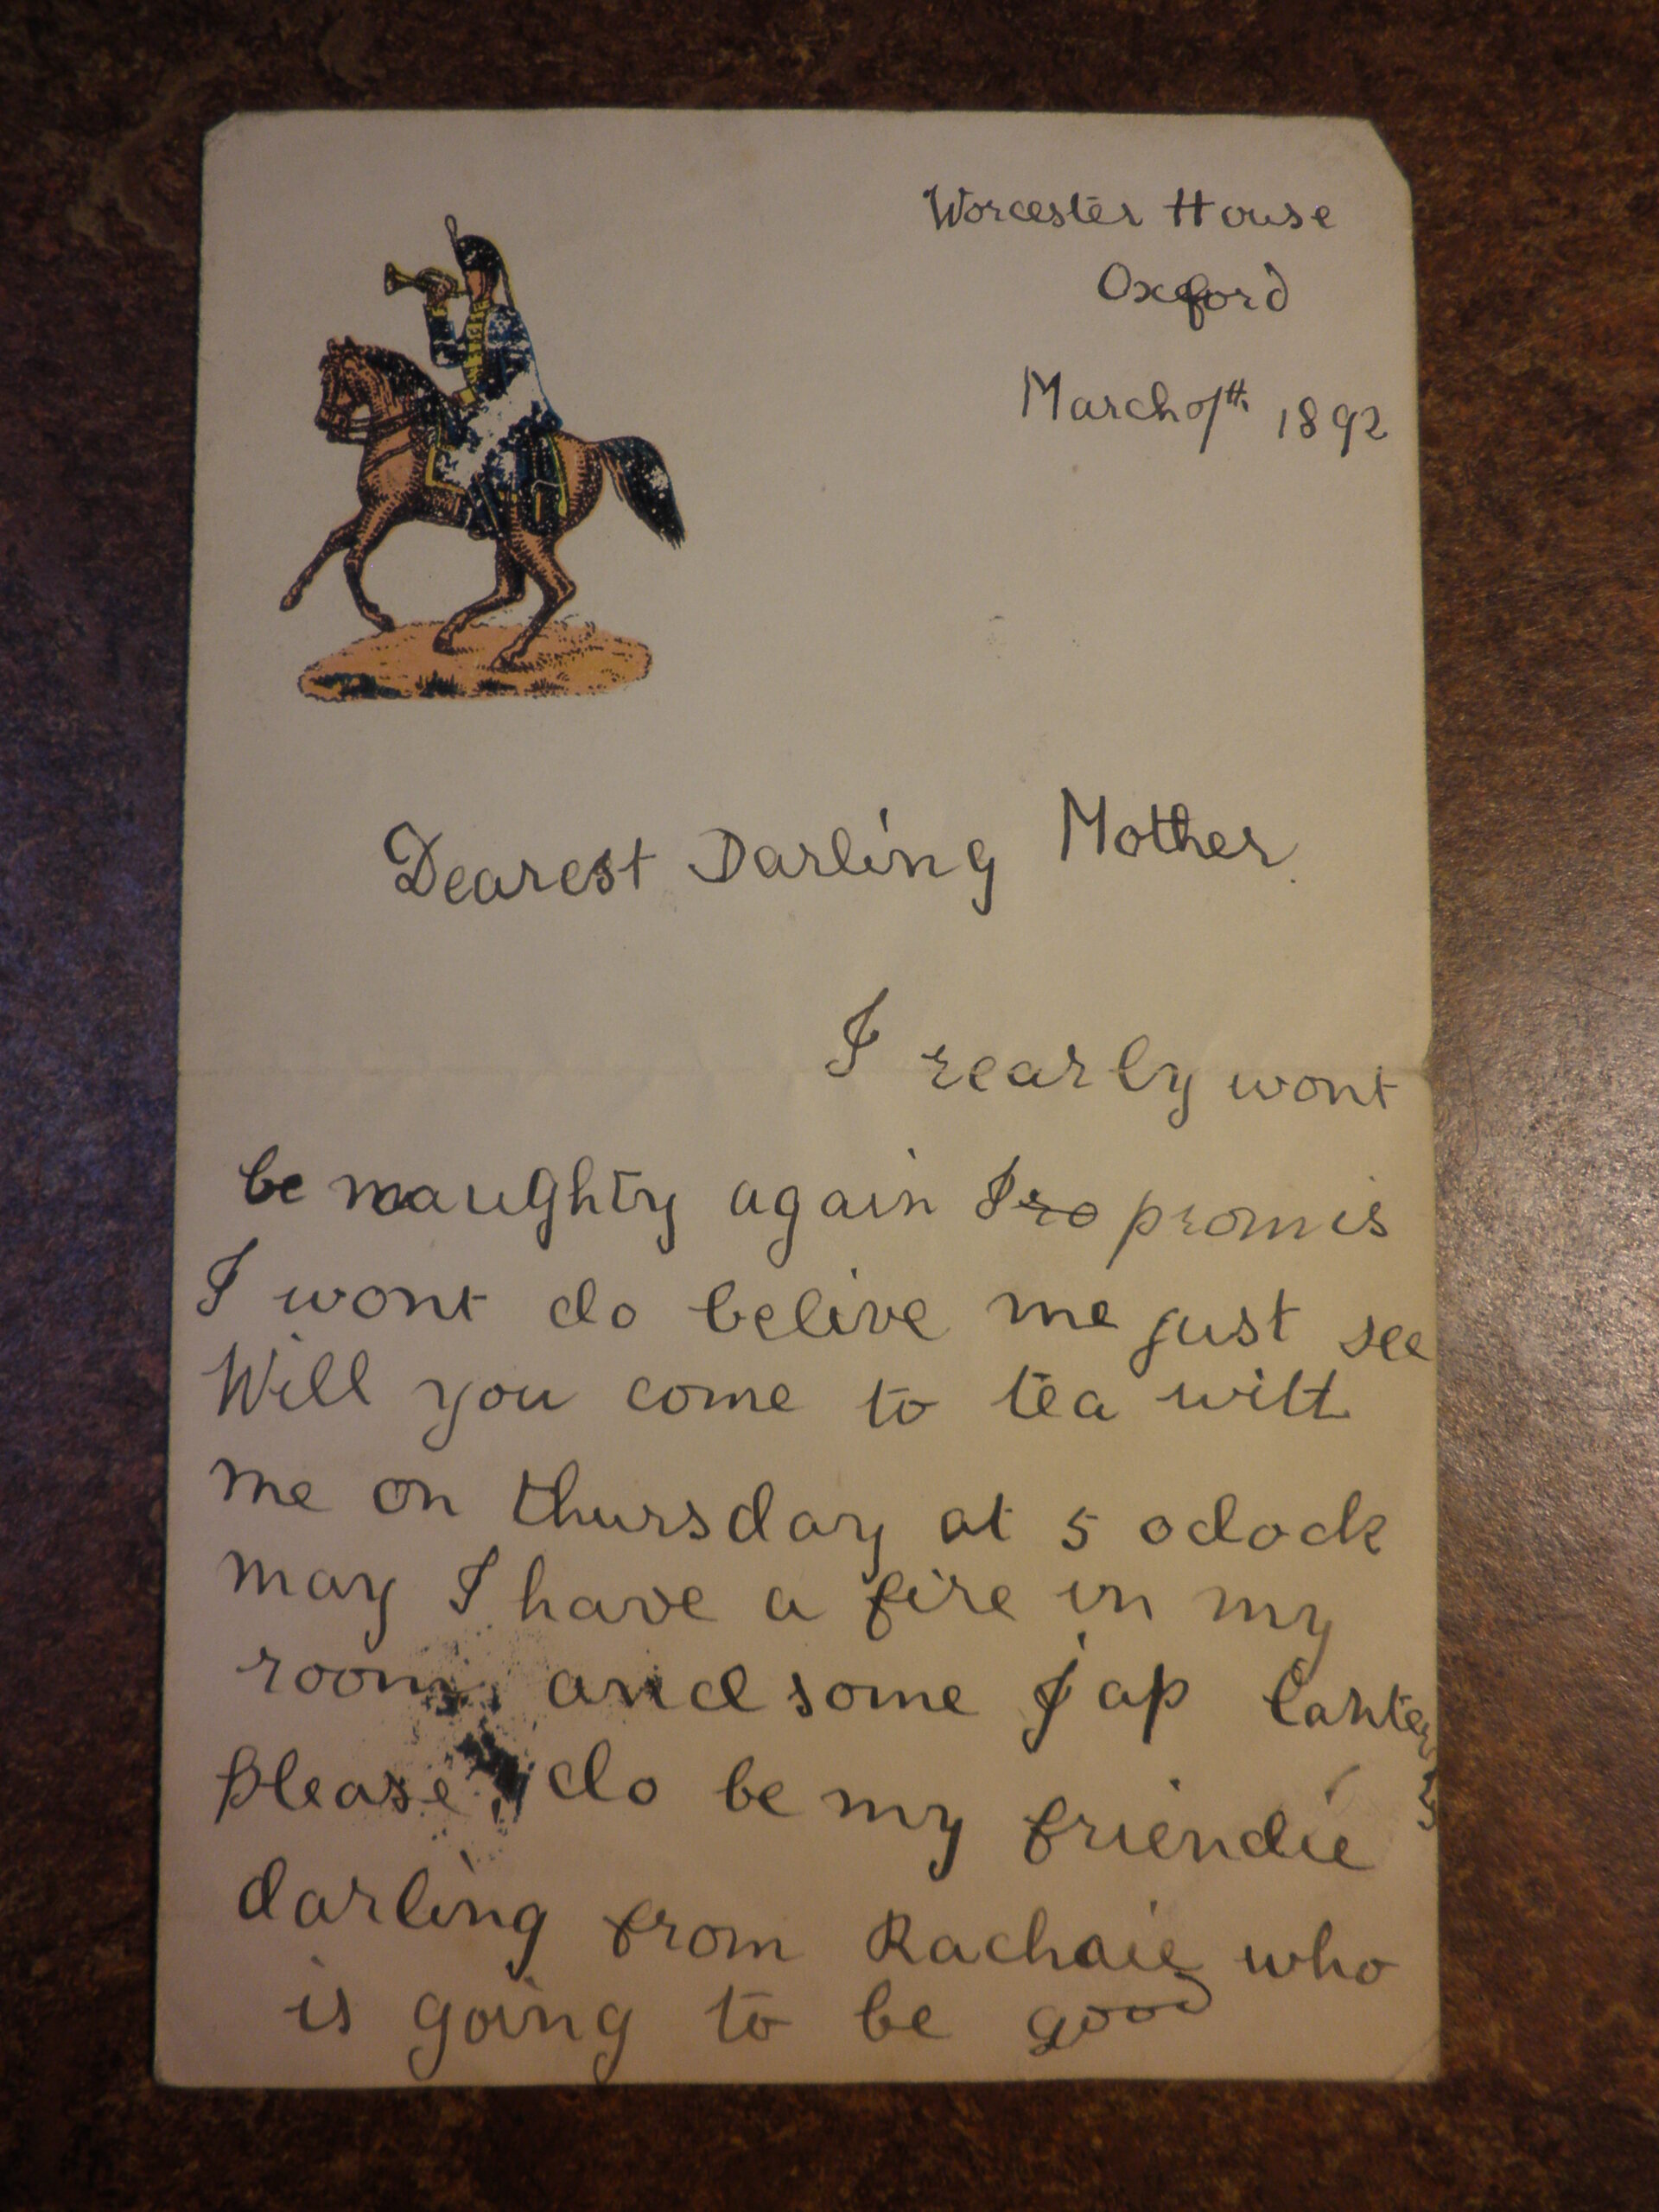 Worcester House
Oxford
March 7th. 1892
Dearest Darling Mother.
I rearly wont
be naughty again I ro promis
I wont do belive me just see
Will you come to tea with
me on thursday at 5 oclock
may I have a fire in my
room and some jap lanterns
please, do be my friendie
darling from Rachaie who
is going to be good